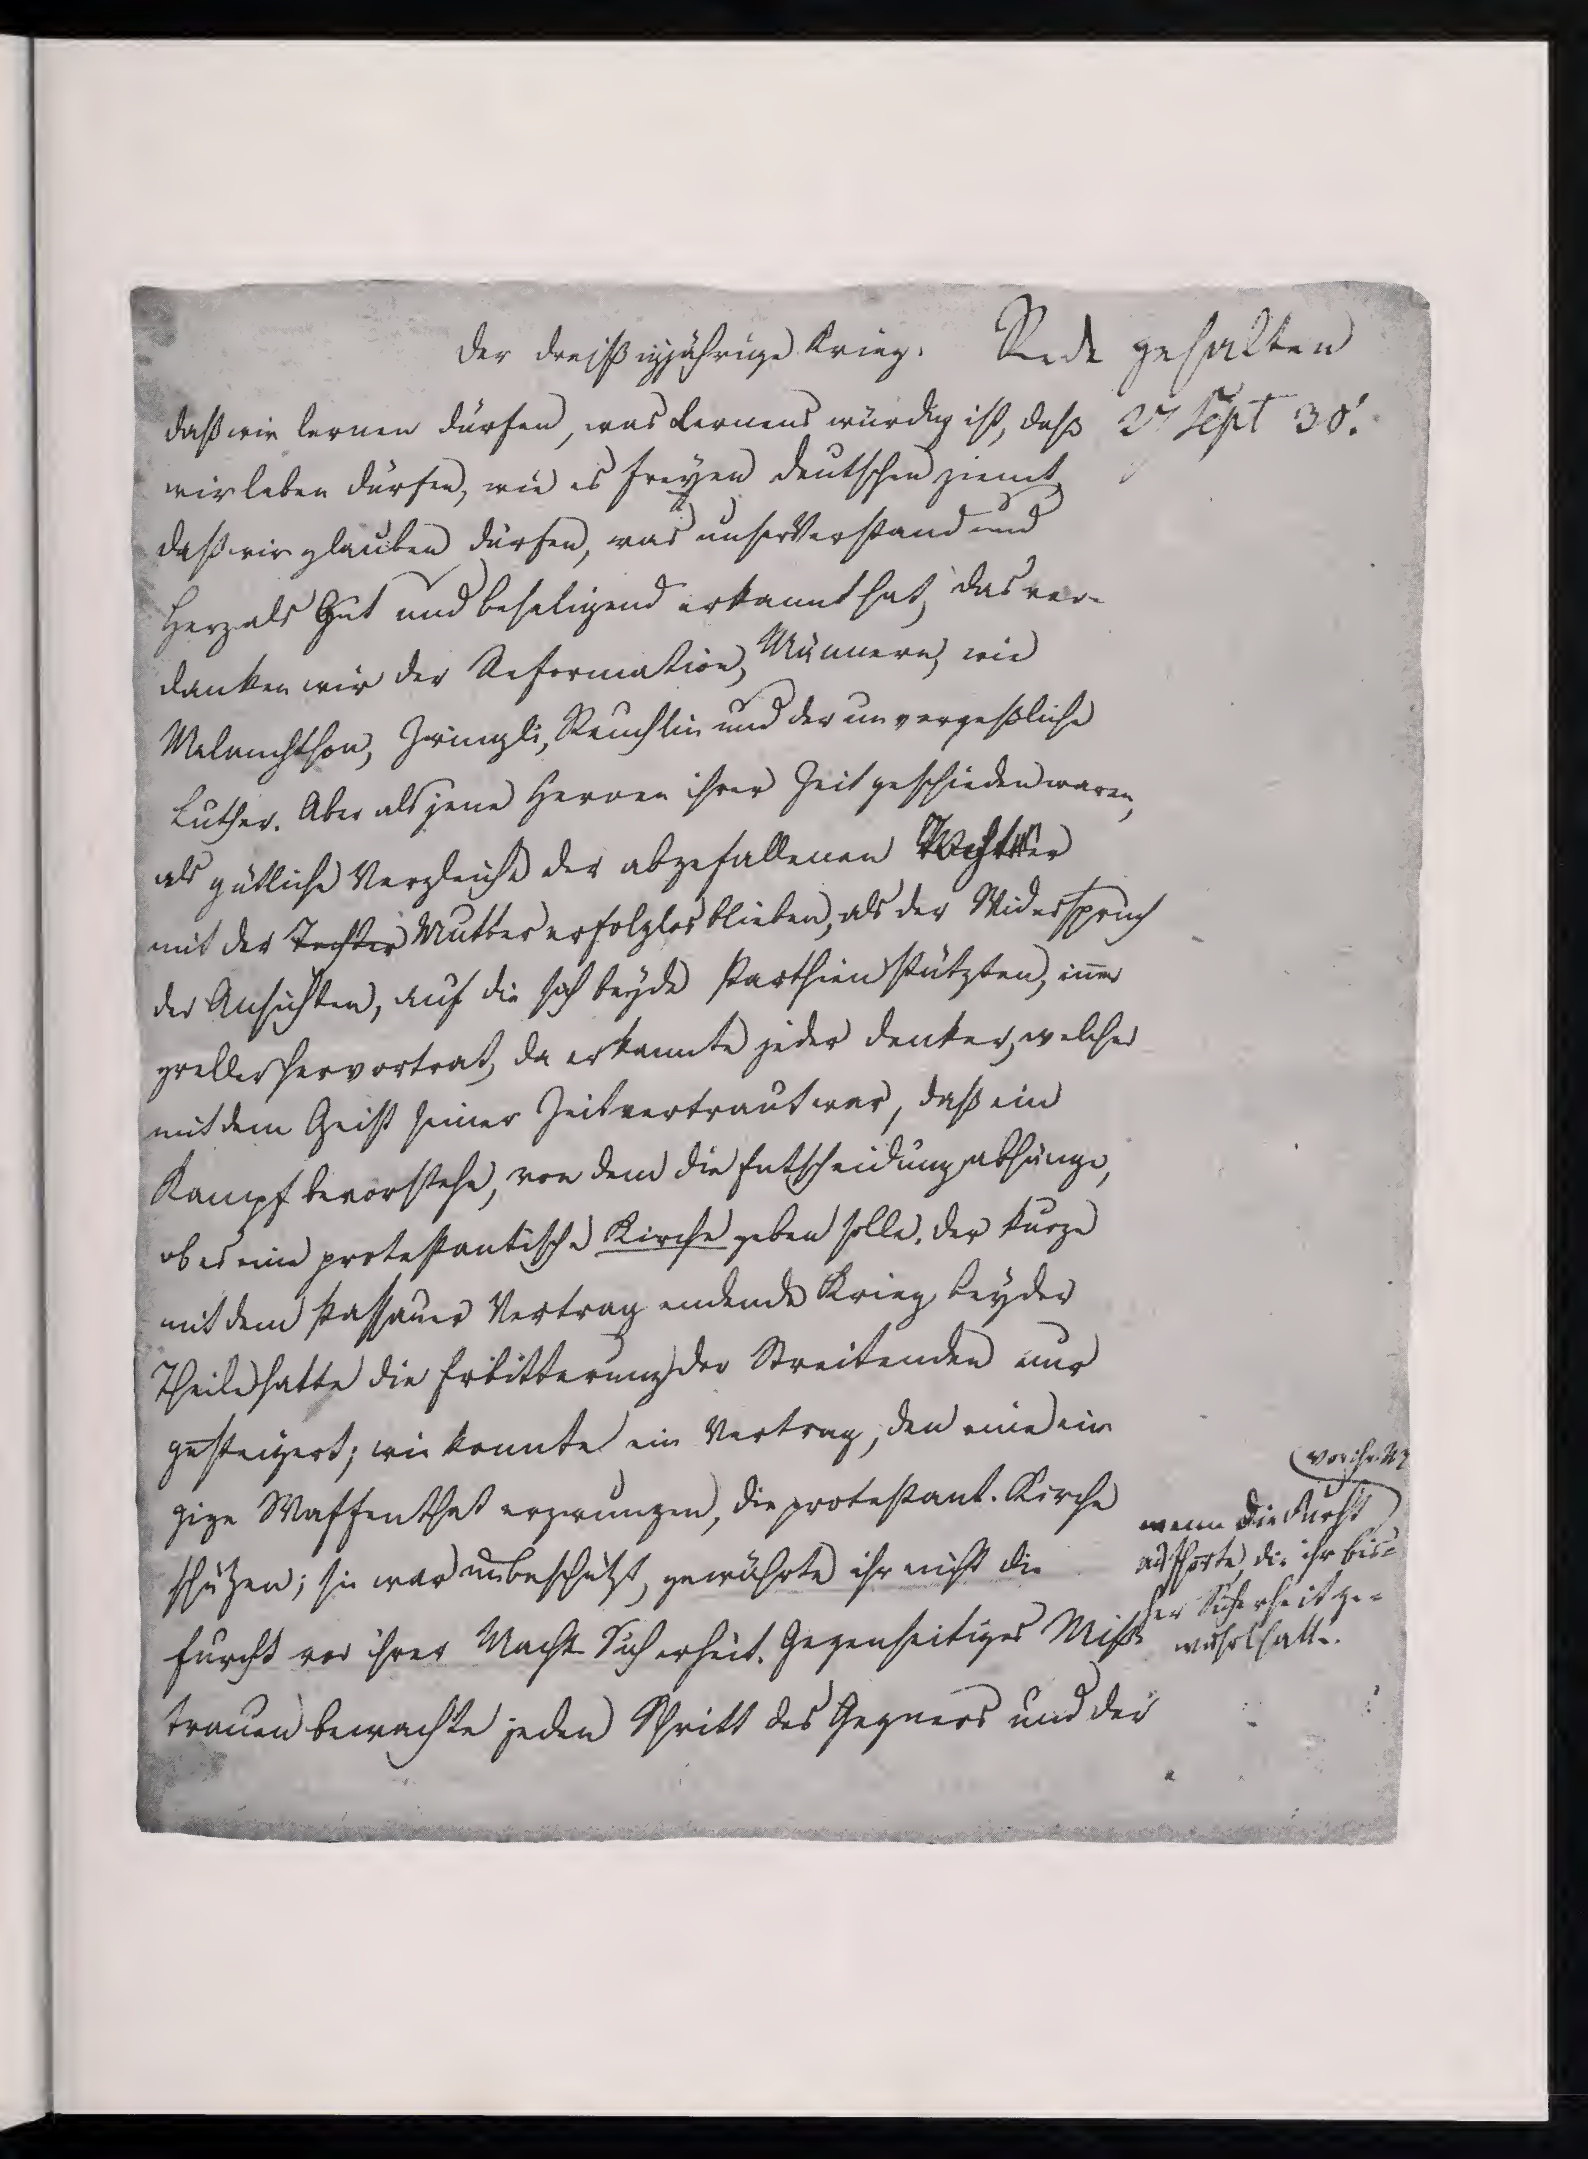 Der dreißigjährige Krieg. Rede gehalten
27 Sept 30.
Daß wir lernen dürfen, was Lernens würdig ist, daß
wir leben dürfen, wie es freyen Deutschen ziemt,
daß wir glauben dürfen, was unser Verstand und
Herz als Gut und beseligend erkannt hat, das ver-
danken wir der Reformation, Männern, wie
Melanchthon, Zwingli, Reuchlin und der unvergeßliche
Luther. Aber als jene Heroen ihrer Zeit geschieden waren,
als gütliche Vergleiche der abgefallenen Tochter
mit der Tochter Mutter erfolglos blieben, als der Widerspruch
der Ansichten, auf die sich beyde Parthien stützten, imer
greller hervortrat, da erkannte jeder Denker, welcher
mit dem Geist seiner Zeit vertraut war, daß ein
Kampf bevorstehe, von dem die Entscheidung abhänge,
ob es eine protestantische Kirche geben solle. Der kurze
mit dem Passauer Vertrag endende Krieg beyder
Theile hatte die Erbitterung der Streitenden nur
gesteigert; wie konnte ein Vertrag, den eine ein
zige Waffenthat erzwungen, die protestant. Kirche
schützen; sie war unbeschützt, gewährte ihr nicht die
Furcht vor ihrer Macht Sicherheit. Gegenseitiges Miß-
trauen bewachte jeden Schritt des Gegners und der
vor ihr. M
wenn die Furcht
aufhörte, die ihr bis-
her Sicherheit ge-
währt hatte.